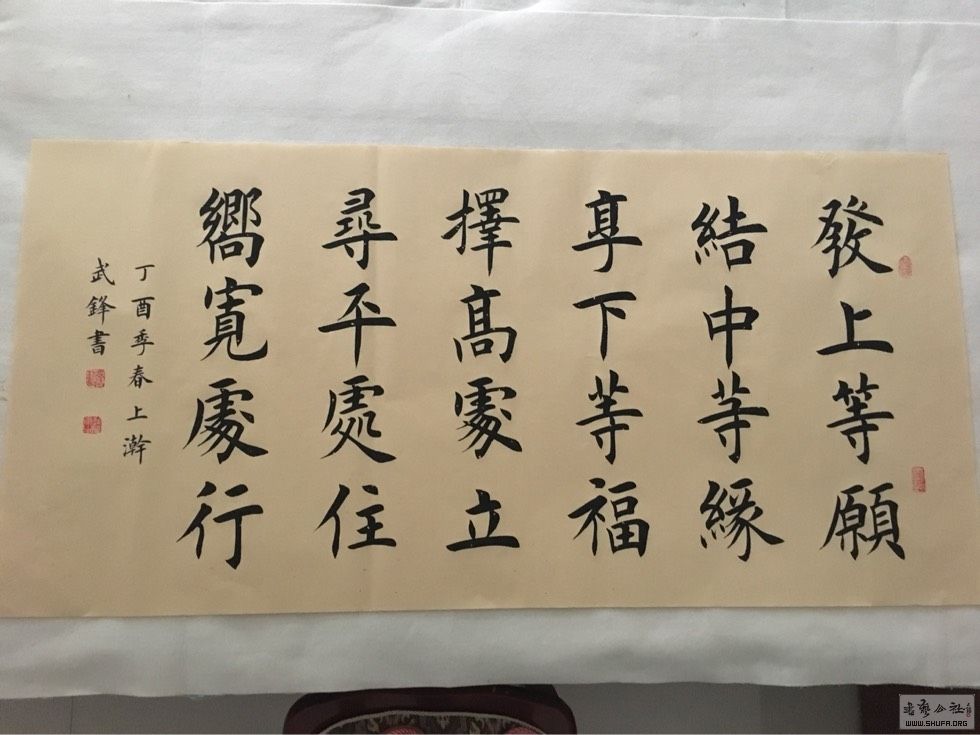 發上等願
結中等緣
享下等福
擇高處立
尋平處住
嚮寬處行
丁酉季春上澣
武鋒書
書藝公社
WWW.SHUFA.ORG